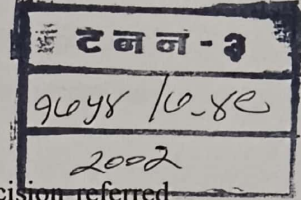 टनन - ३
१७५४ /७-४९
2002
cision referred